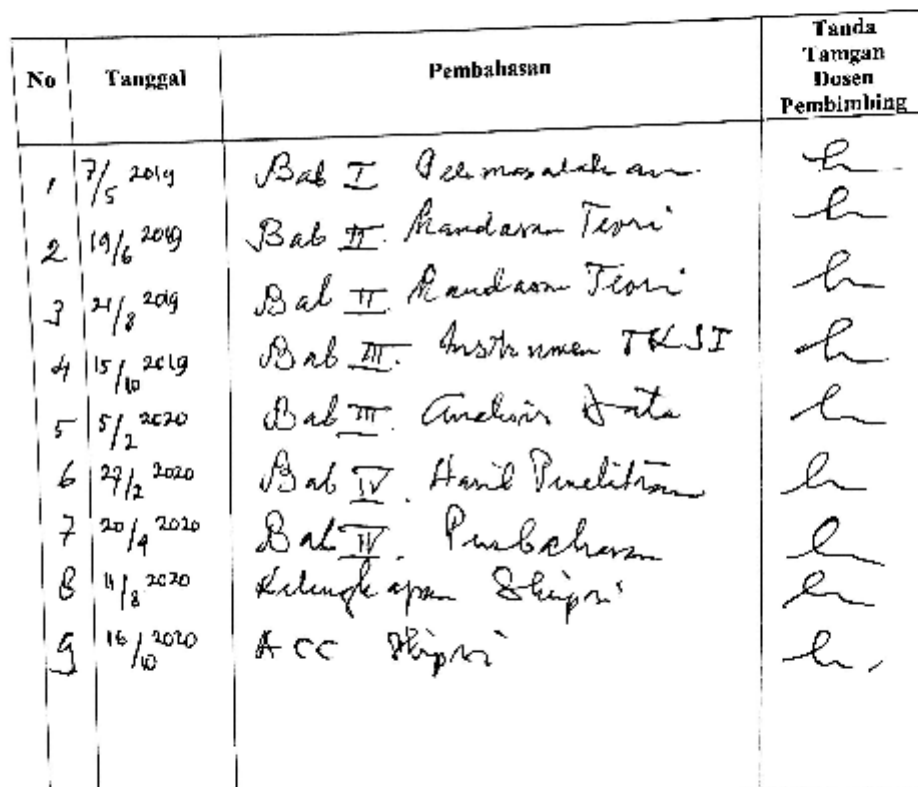 No Tanggal Pembahasan Tanda Tamgan Dosen Pembimbing
1 7/5 2019 Bab I Permasalahan
2 19/6 2019 Bab II. Landasan Teori
3 21/8 2019 Bab II Landasan Teori
4 15/10 2019 Bab III. Instrumen TKJI
5 5/2 2020 Bab III Analisis Data
6 27/2 2020 Bab IV. Hasil Penelitian
7 20/4 2020 Bab IV. Pembahasan
8 11/8 2020 Kelengkapan Skripsi
9 16/10 2020 ACC Skripsi